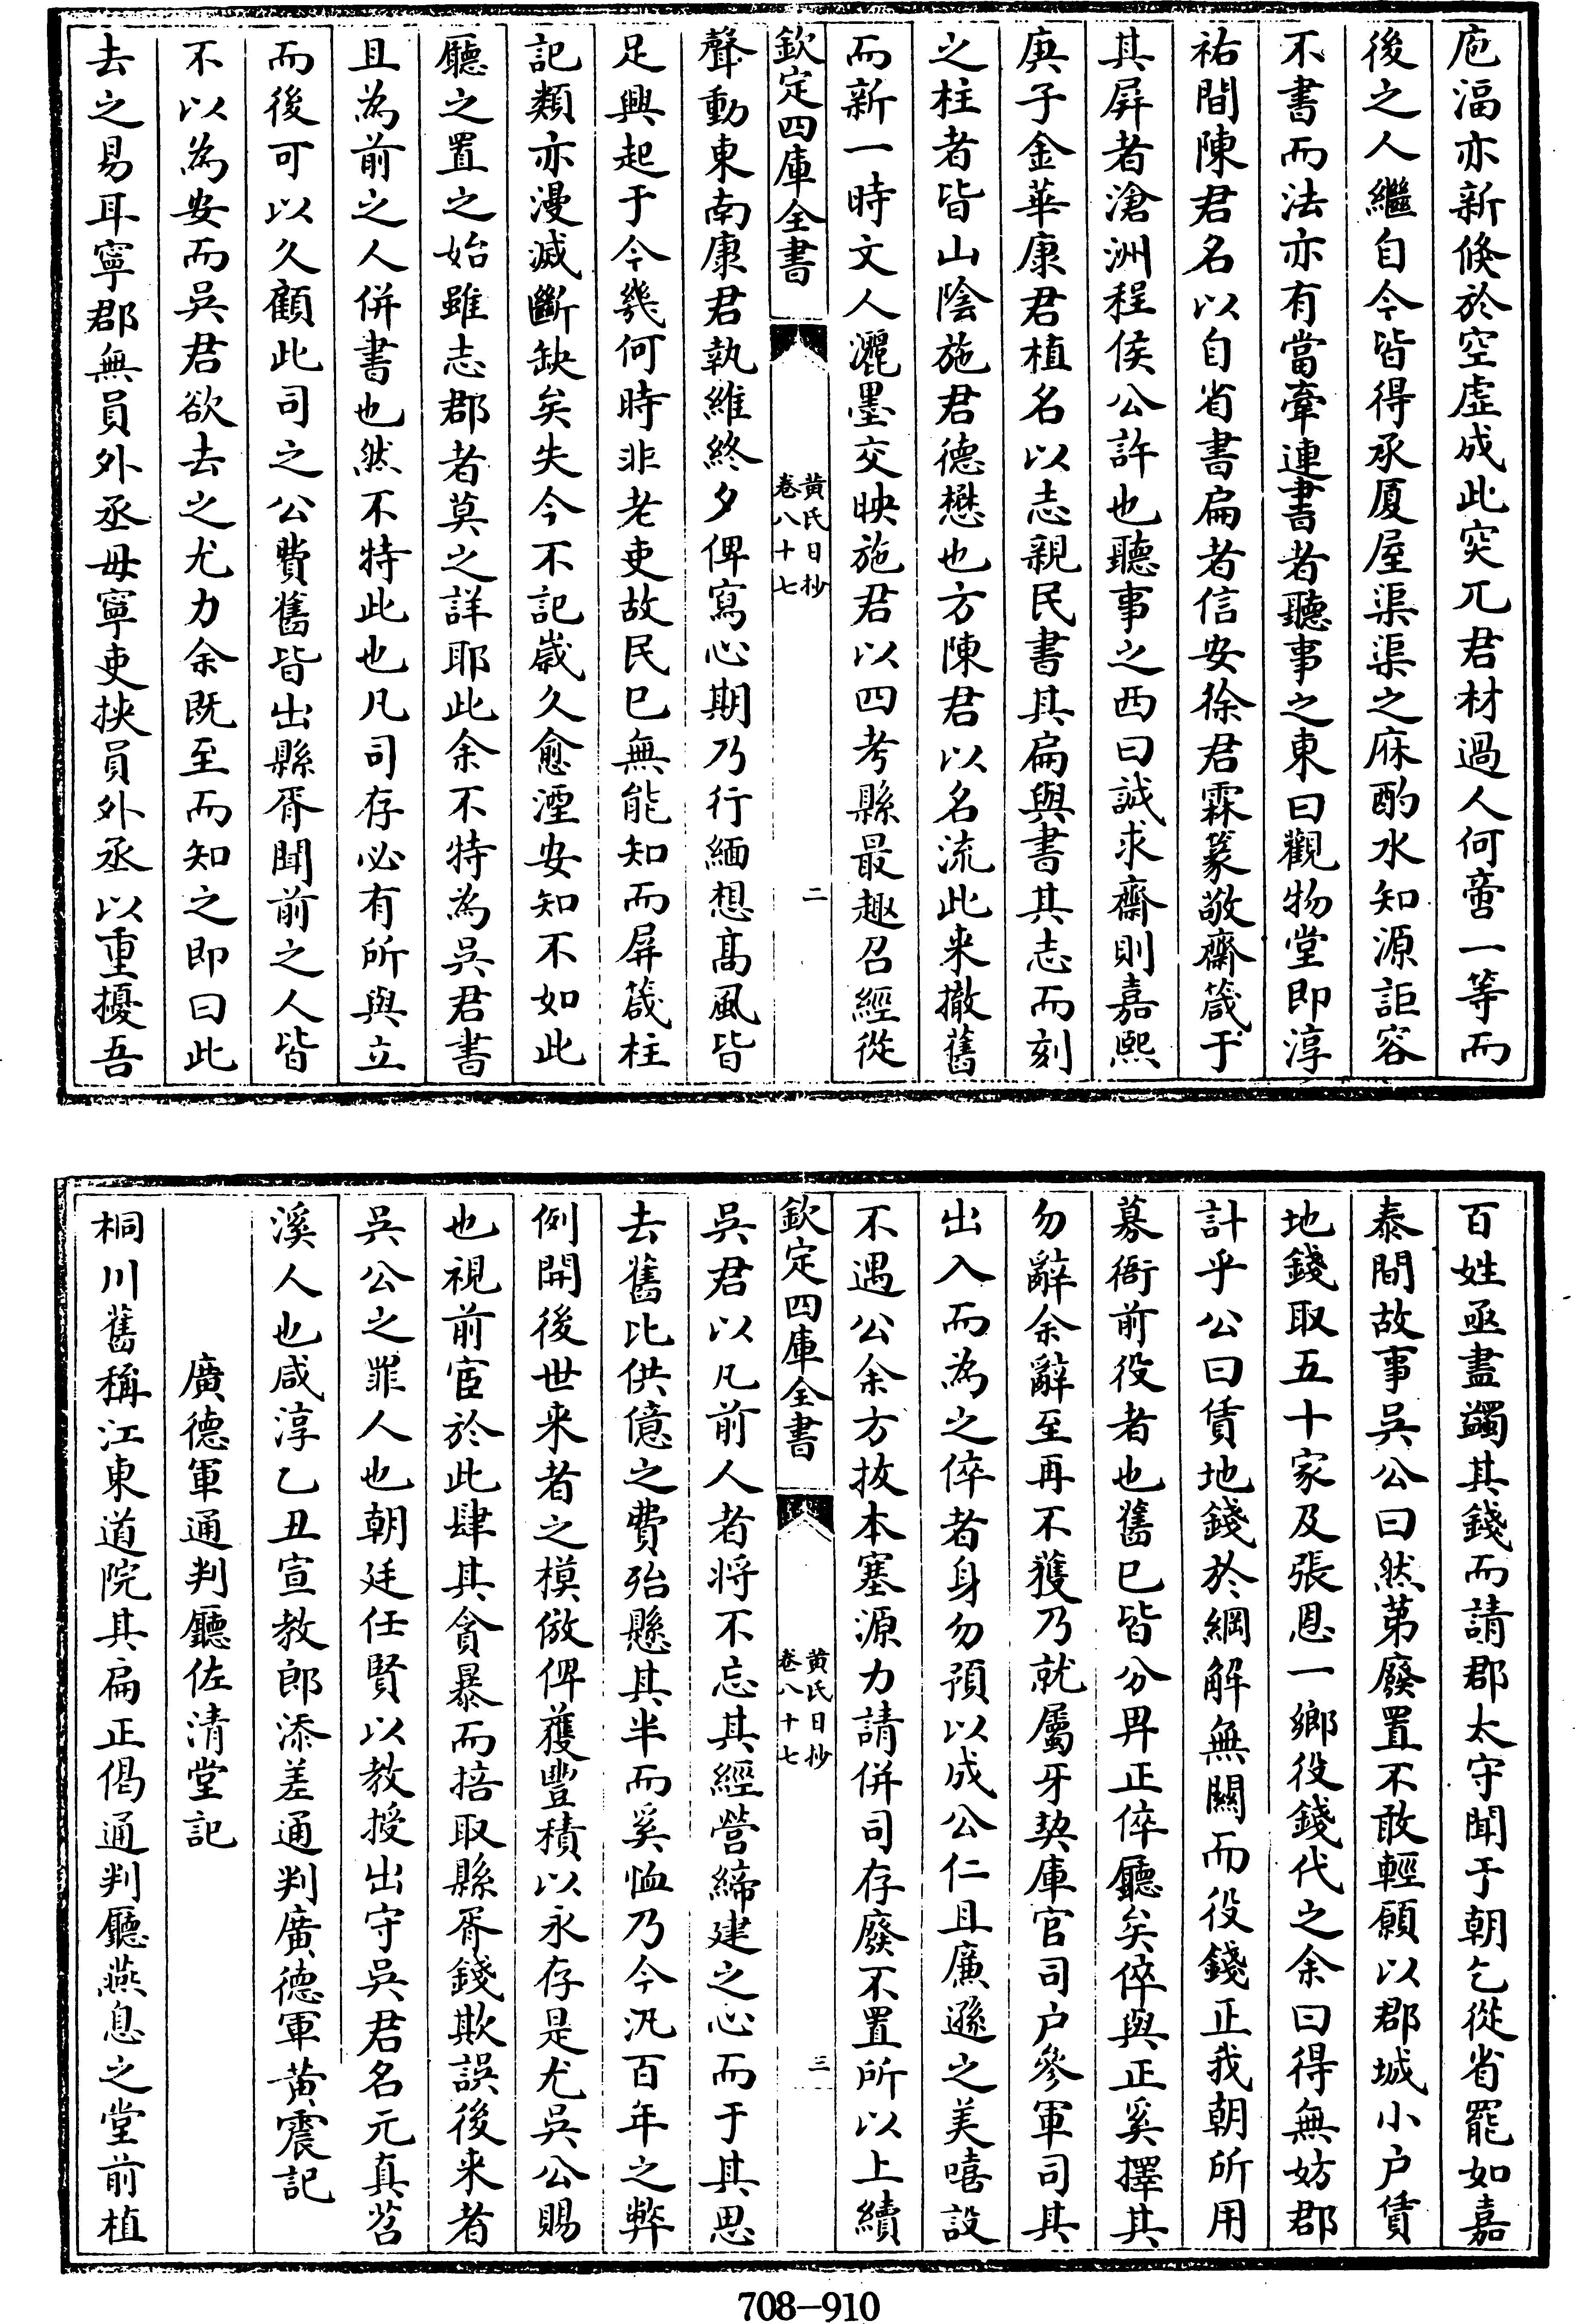 庖湢亦新倐於空虛成此突兀君材過人何啻一等而
後之人繼自今皆得承厦屋渠渠之庥酌水知源詎容
不書而法亦有當牽連書者聽事之東曰觀物堂即淳
祐間陳君名以自省書扁者信安徐君霖篆敬齋箴于
其屏者滄洲程侯公許也聽事之西曰誠求齋則嘉熙
庚子金華康君植名以志親民書其扁與書其志而刻
之柱者皆山陰施君德懋也方陳君以名流此来撤舊
而新一時文人灑墨交映施君以四考縣最趣召經從
欽定四庫全書
黄氏日抄
卷八十七
二
聲動東南康君執維終夕俾寫心期乃行緬想髙風皆
足興起于今幾何時非老吏故民已無能知而屏箴柱
記類亦漫滅斷缺矣失今不記嵗久愈湮安知不如此
廳之置之始雖志郡者莫之詳耶此余不特為吳君書
且為前之人併書也然不特此也凡司存必有所與立
而後可以久顧此司之公費舊皆出縣胥聞前之人皆
不以為安而吳君欲去之尤力余既至而知之即曰此
去之易耳寧郡無員外丞毋寧吏挾員外丞以重擾吾
百姓亟盡蠲其錢而請郡太守聞于朝乞從省罷如嘉
泰間故事吳公曰然第廢置不敢輕願以郡城小户賃
地錢取五十家及張恩一鄉役錢代之余曰得無妨郡
計乎公曰賃地錢於綱解無闗而役錢正我朝所用
募衙前役者也舊已皆分畀正倅廳矣倅與正奚擇其
勿辭余辭至再不獲乃就屬牙契庫官司户參軍司其
出入而為之倅者身勿預以成公仁且廉遜之美嘻設
不遇公余方抜本塞源力請併司存廢不置所以上續
欽定四庫全書
黄氏日抄
卷八十七
三
吳君以凡前人者将不忘其經營締建之心而于其思
去舊比供億之費殆懸其半而奚恤乃今汎百年之弊
例開後世来者之模倣俾獲豐積以永存是尤吳公賜
也視前宦於此肆其貪暴而掊取縣胥錢欺誤後来者
吳公之罪人也朝廷任賢以教授出守吳君名元真苕
溪人也咸淳乙丑宣教郎添差通判廣德軍黄震記
廣德軍通判廳佐清堂記
桐川舊稱江東道院其扁正偈通判廳燕息之堂前植
708-910